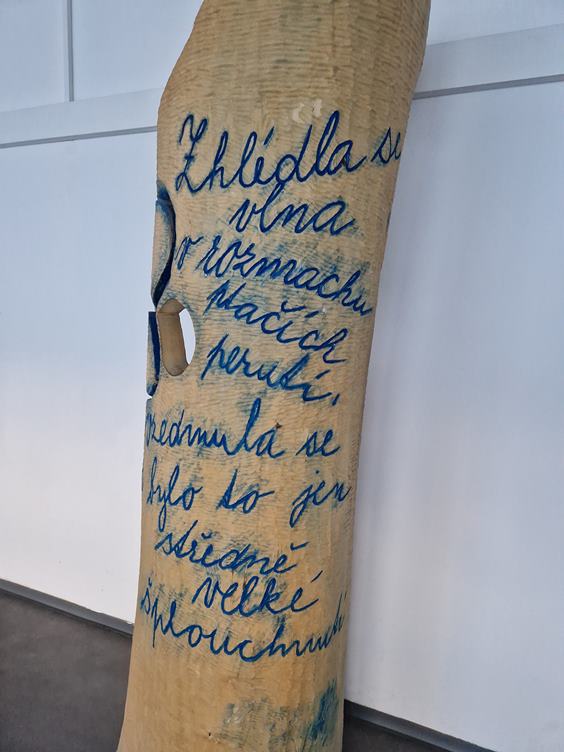 Zhlédla se
vlna
v rozmachu
ptačích
perutí,
vzedmula se
bylo to jen
středně
velké
šplouchnutí